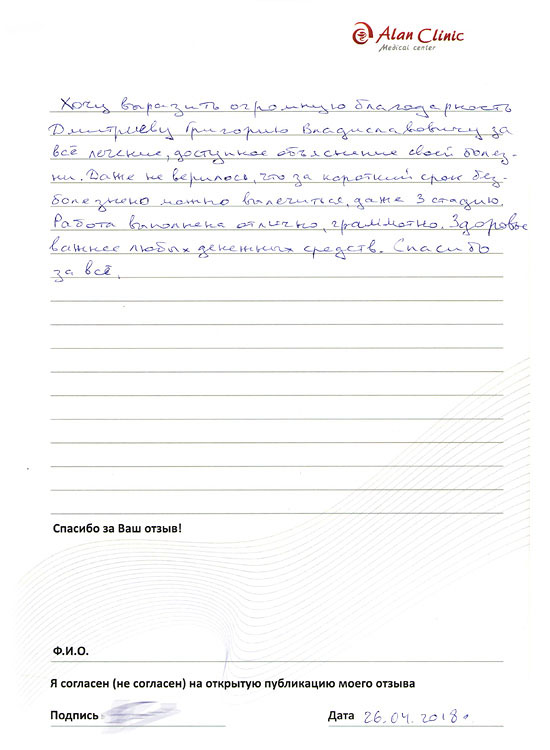 Alan Clinic
Medical center
Хочу выразить огромную благодарность
Дмитриеву Григорию Владиславовичу за
всё лечение, доступное объяснение своей болез-
ни. Даже не верилось, что за короткий срок без-
болезнено можно вылечиться, даже 3 стадию.
Работа выполнена отлично, грамотно. Здоровье
важнее любых денежных средств. Спасибо
за всё.
Спасибо за Ваш отзыв!
Ф.И.О.
Я согласен (не согласен) на открытую публикацию моего отзыва
Подпись
Дата 26.04.2018г